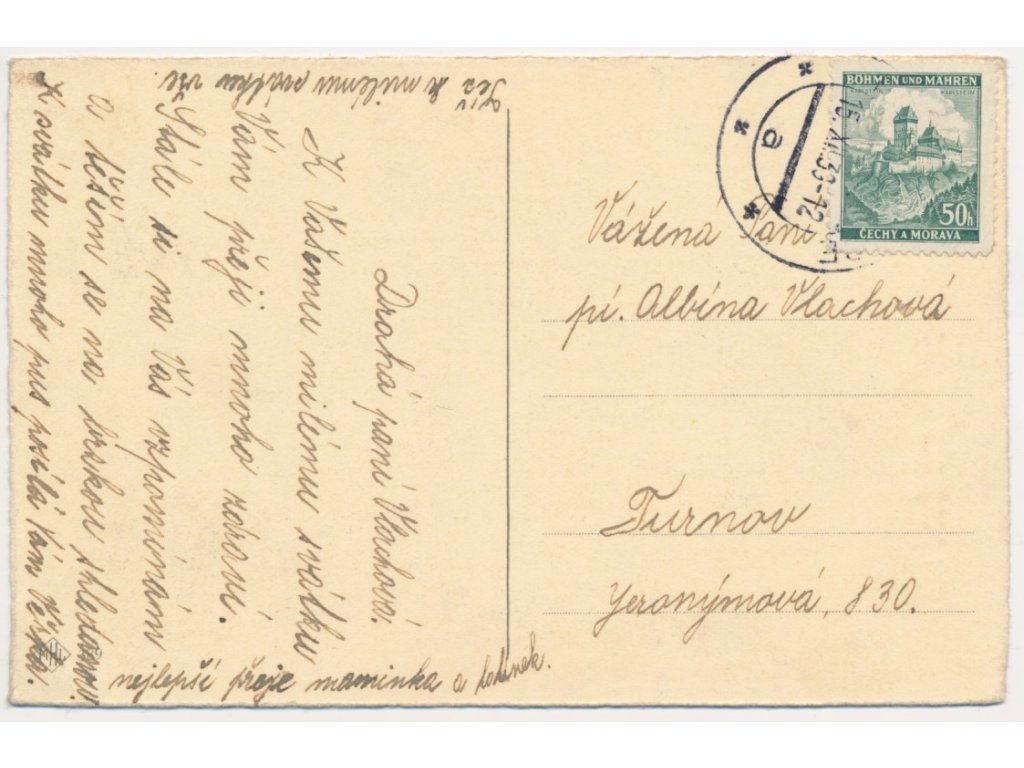 Drahá paní Vlachová.
K Vašemu milému svátku
Vám přeji mnoho zdraví.
Stále si na Vás vzpomínám
a těším se na brzkou shledanou.
K svátku mnoho pus posílá Vám Věrka.
Též k milému svátku vše
nejlepší přeje maminka a tatínek.
BÖHMEN UND MÄHREN
KARLSTEIN
50h
ČECHY A MORAVA
15.XII.39-12
a
Vážená Paní
pí. Albína Vlachová
Turnov
Jeronýmová, 830.